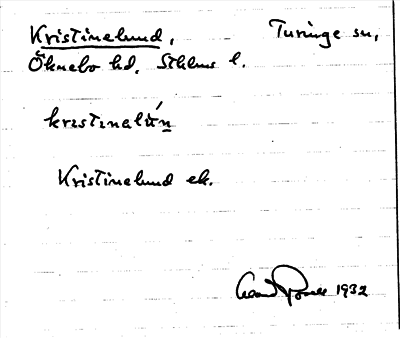 Kristinelund, Turinge sn,
Öknebo hd, Sthlms l.
kristinalún
Kristinelund ek.
1932